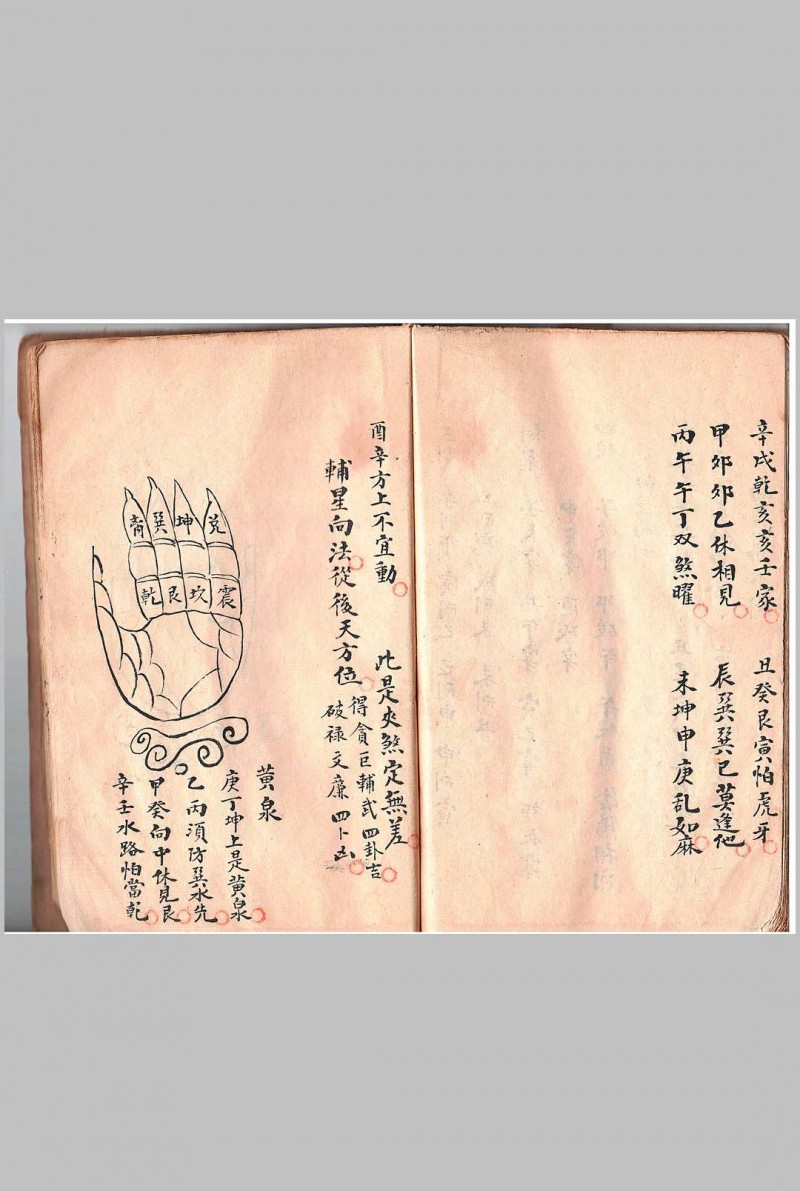 辛戌乾亥亥壬家
丑癸艮寅怕虎牙
甲夘夘乙休相見
辰巽巽巳莫逢他
丙午午丁双煞曜
未坤申庚乱如麻
酉辛方上不宜動
此是夾煞定無差
輔星向法從後天方位
得貪巨輔武四卦吉
破禄文廉四卜凶
巽 坤 兌
乾 艮 坎 震
黄泉
庚丁坤上是黄泉
乙丙須防巽水先
甲癸向中休見艮
辛壬水路怕當乾